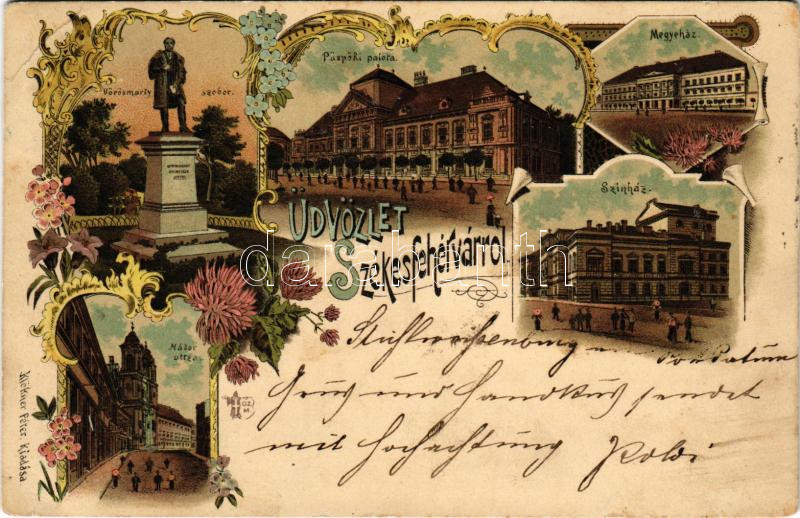 Vörösmarty szobor.
Püspöki palota.
Megyeház.
Szinház.
ÜDVÖZLET
Székesfehérvárról.
Nádor
uttza
Klökner Péter. Kiadása
darabanth
Gruss und Handkuss sendet
mit Hochachtung Poldi